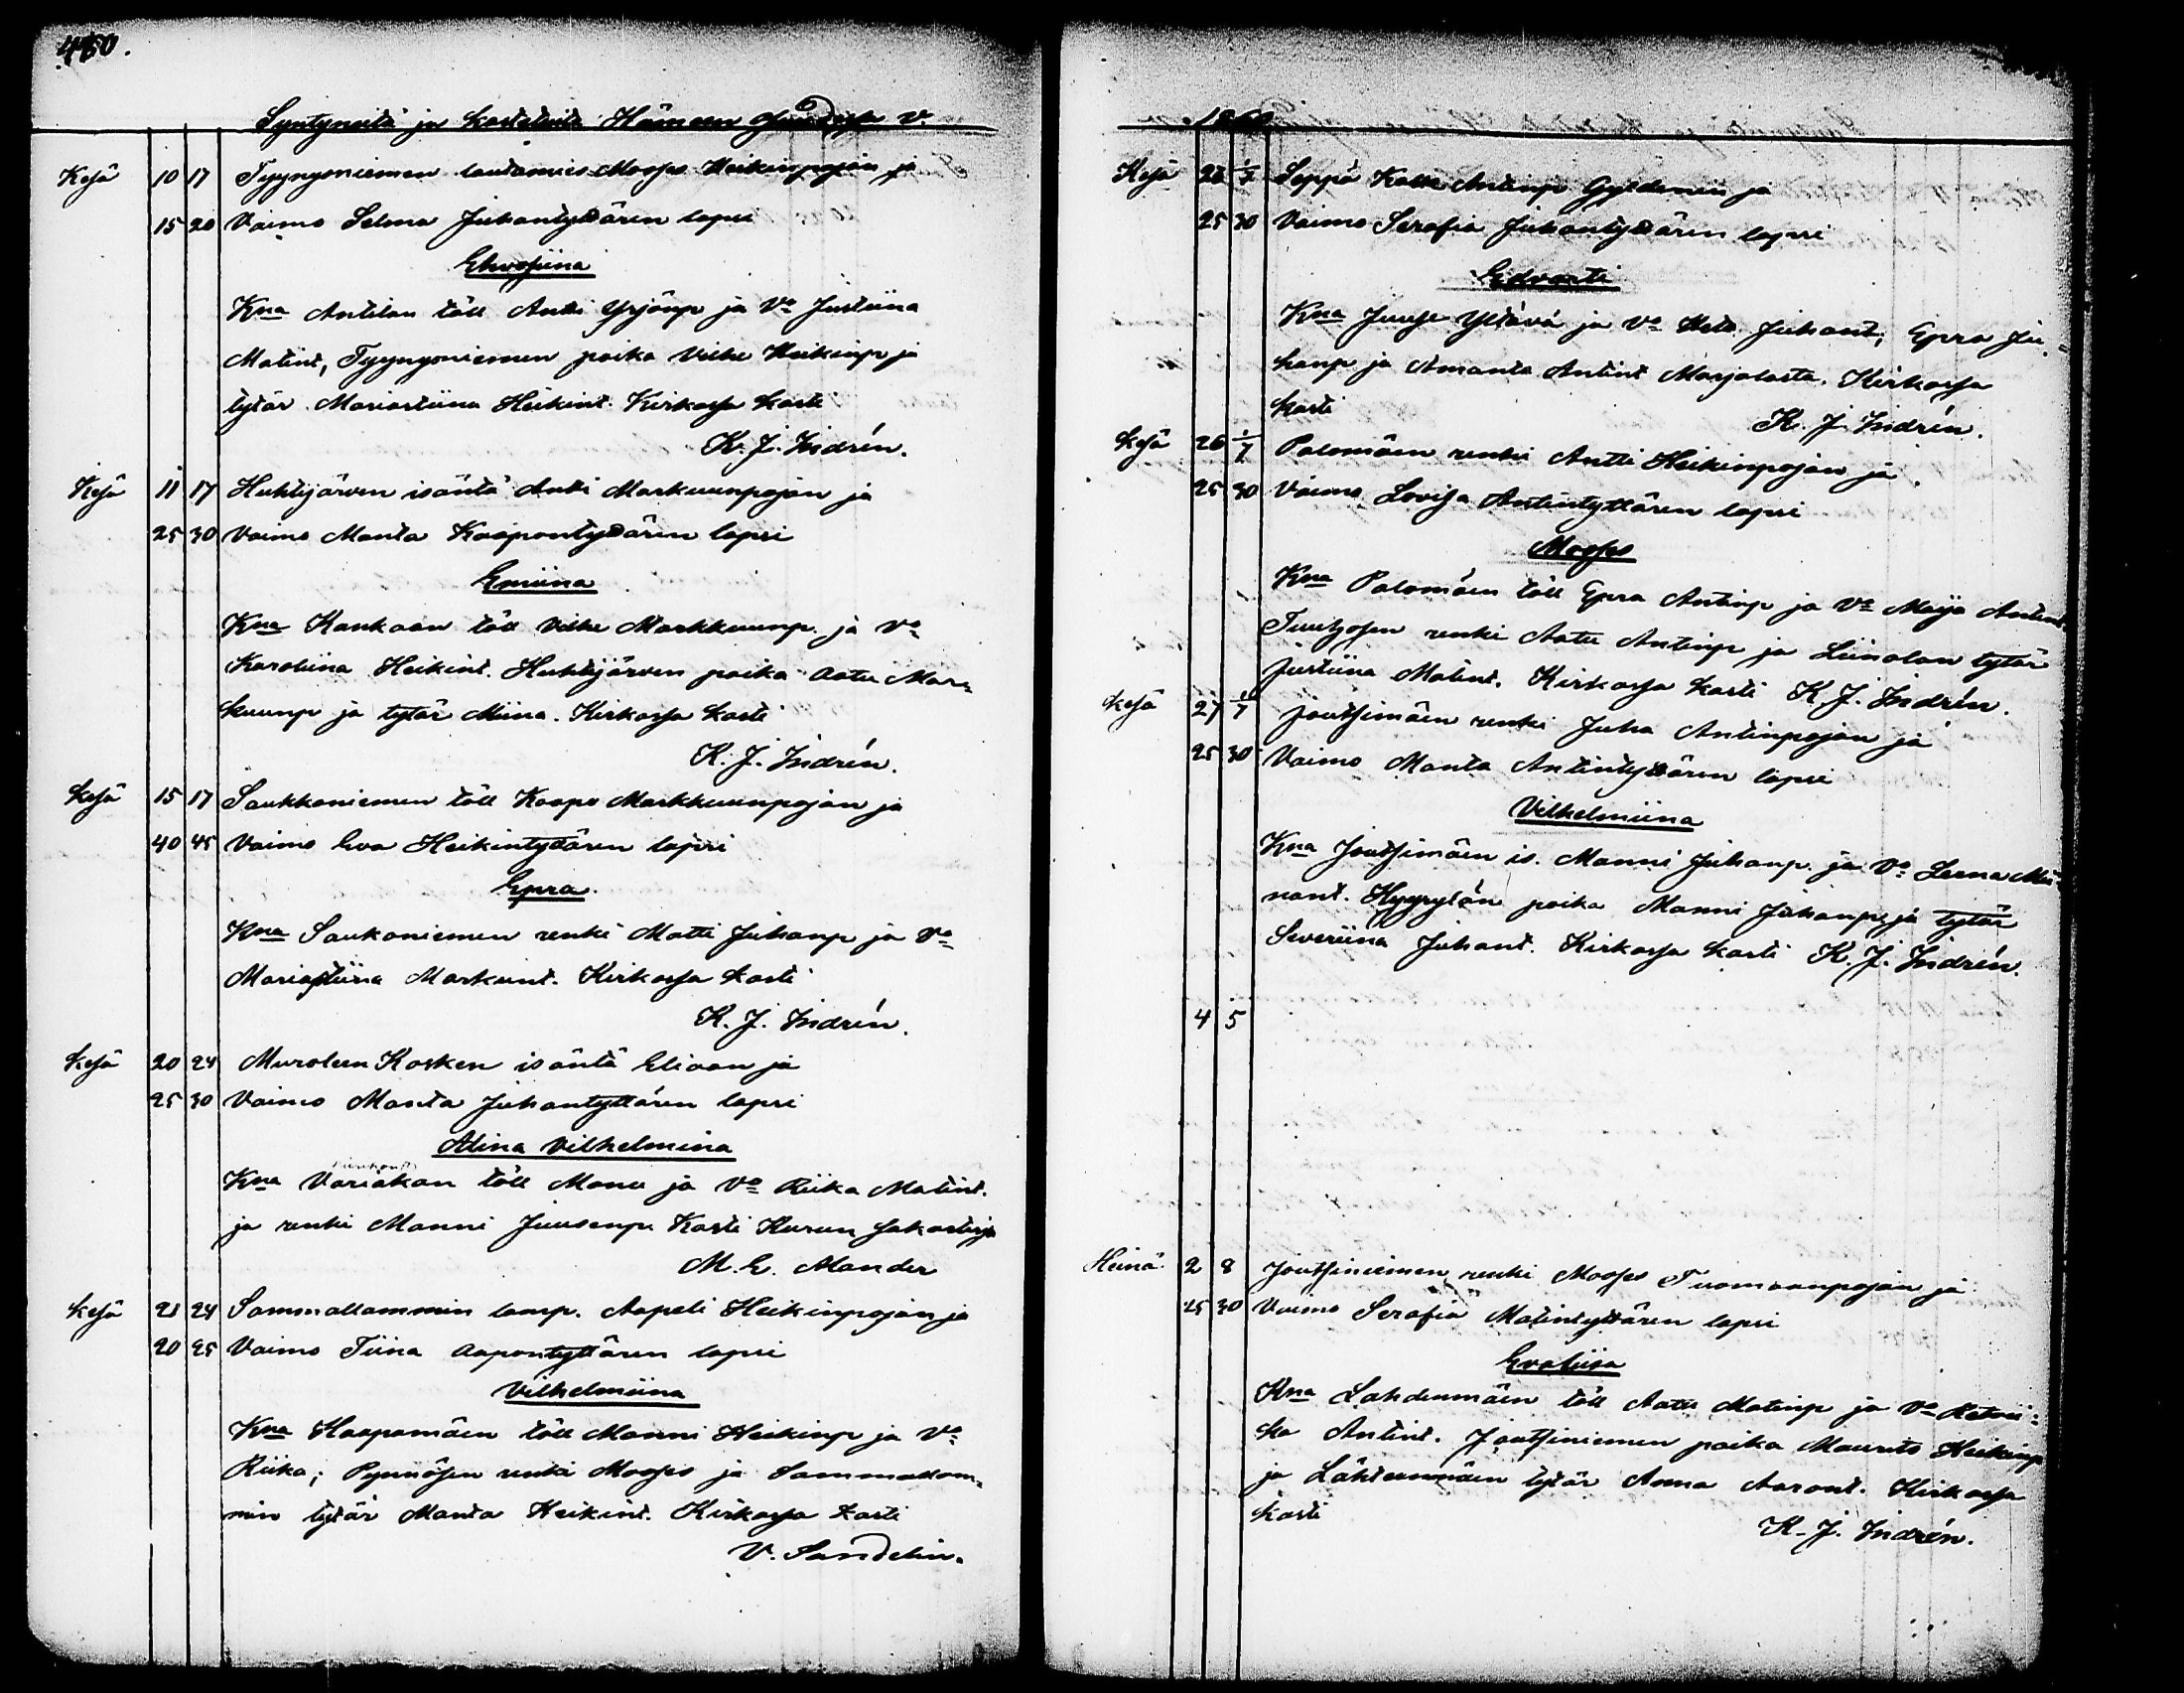 450.
Syntyneitä ja kastetuita Hämeen V.
Kesä 10 17 Tyynyniemen lautamies Mooses Heikinpojan ja
15 20 Vaimo Selma Juhantyttären lapsi
Ehvosiina
Kna Antilan till Antti Yrjönp ja Vo Justiina
Matint, Tyynyniemen poika Vilhe Heikinp ja
tytär Mariastiina Heikint. Kirkossa kasti
K. J. Indrén.
Kesä 11 17 Huhtijärven isäntä Antti Markuunpojan ja
25 30 Vaimo Manta Kaapontyttären lapsi
Emiina
Kna Kankaan till Vilhe Markkuunp. ja Vo
Karoliina Heikint. Huhtijärven poika Aatu Mar-
kuunp ja tytär Miina. Kirkossa kasti
K. J. Indrén.
Kesä 15 17 Saukkoniemen till Kaapo Markkuunpojan ja
40 45 Vaimo Eva Heikintyttären lapsi
Epra.
Kna Saukoniemen renki Matti Juhanp ja Vo
Mariastiina Markunt. Kirkossa kasti
K. J. Indrén.
Kesä 20 24 Muroleen Kosken isäntä Eliaan ja
25 30 Vaimo Manta Juhantyttären lapsi
Alina Vilhelmina
Kna Variakan till Manu ja Vo Riika Matint.
ja renki Manni Juusenp. Kasti Kurun
M. E. Alander
Kesä 21 24 Sammallammin lamp. Aapeli Heikinpojan ja
20 25 Vaimo Tiina Aapontyttären lapsi
Vilhelmiina
Kna Haapamäen till Manni Heikinp ja Vo
Riika; Pynnösen renki Mooses ja Sammallam-
min tytär Manta Heikint. Kirkossa kasti
V. Sandelin.
Kesä 1/7 Seppä Kalle Antinp Gyldeniin ja
25 30 Vaimo Serafia Juhantyttären lapsi
Edvarti
Kna Juuse Ylävä ja Vo Heta Juhant; Epra Ju-
hanp ja Amanta Antint Marjalasta. Kirkossa
kasti
K. J. Indrén.
Kesä 26 1/7 Palomäen renki Antti Heikinpojan ja
25 30 Vaimo Lovisa Antintyttären lapsi
Mooses
Kna Palomäen till Epra Antinp ja Vo Maija Antint
renki Aatu Antinp ja Liinalan tytär
Justiina Matint. Kirkossa kasti K. J. Indrén.
Kesä 27 1/7 Joutsimäen renki Juha Antinpojan ja
25 30 Vaimo Manta Antintyttären lapsi
Vilhelmiina
Kna Joutsimäen is. Manni Juhanp. ja Vo Leena
nant. Hyyrylän poika Manni Juhanp. ja tytär
Severiina Juhant. Kirkossa kasti K. J. Indrén.
4 5
Heinä 2 8 Joutsiniemen renki Mooses Tuomaanpojan ja
25 30 Vaimo Serafia Matintyttären lapsi
Evaliisa
Kna Lahdenmäen till Aatu Matinp ja Vo
ka Antint. Joutsiniemen poika Maurits Heikinp
ja Lähteenmäen tytär Anna Aaront. Kirkossa
kasti
K. J. Indrén.